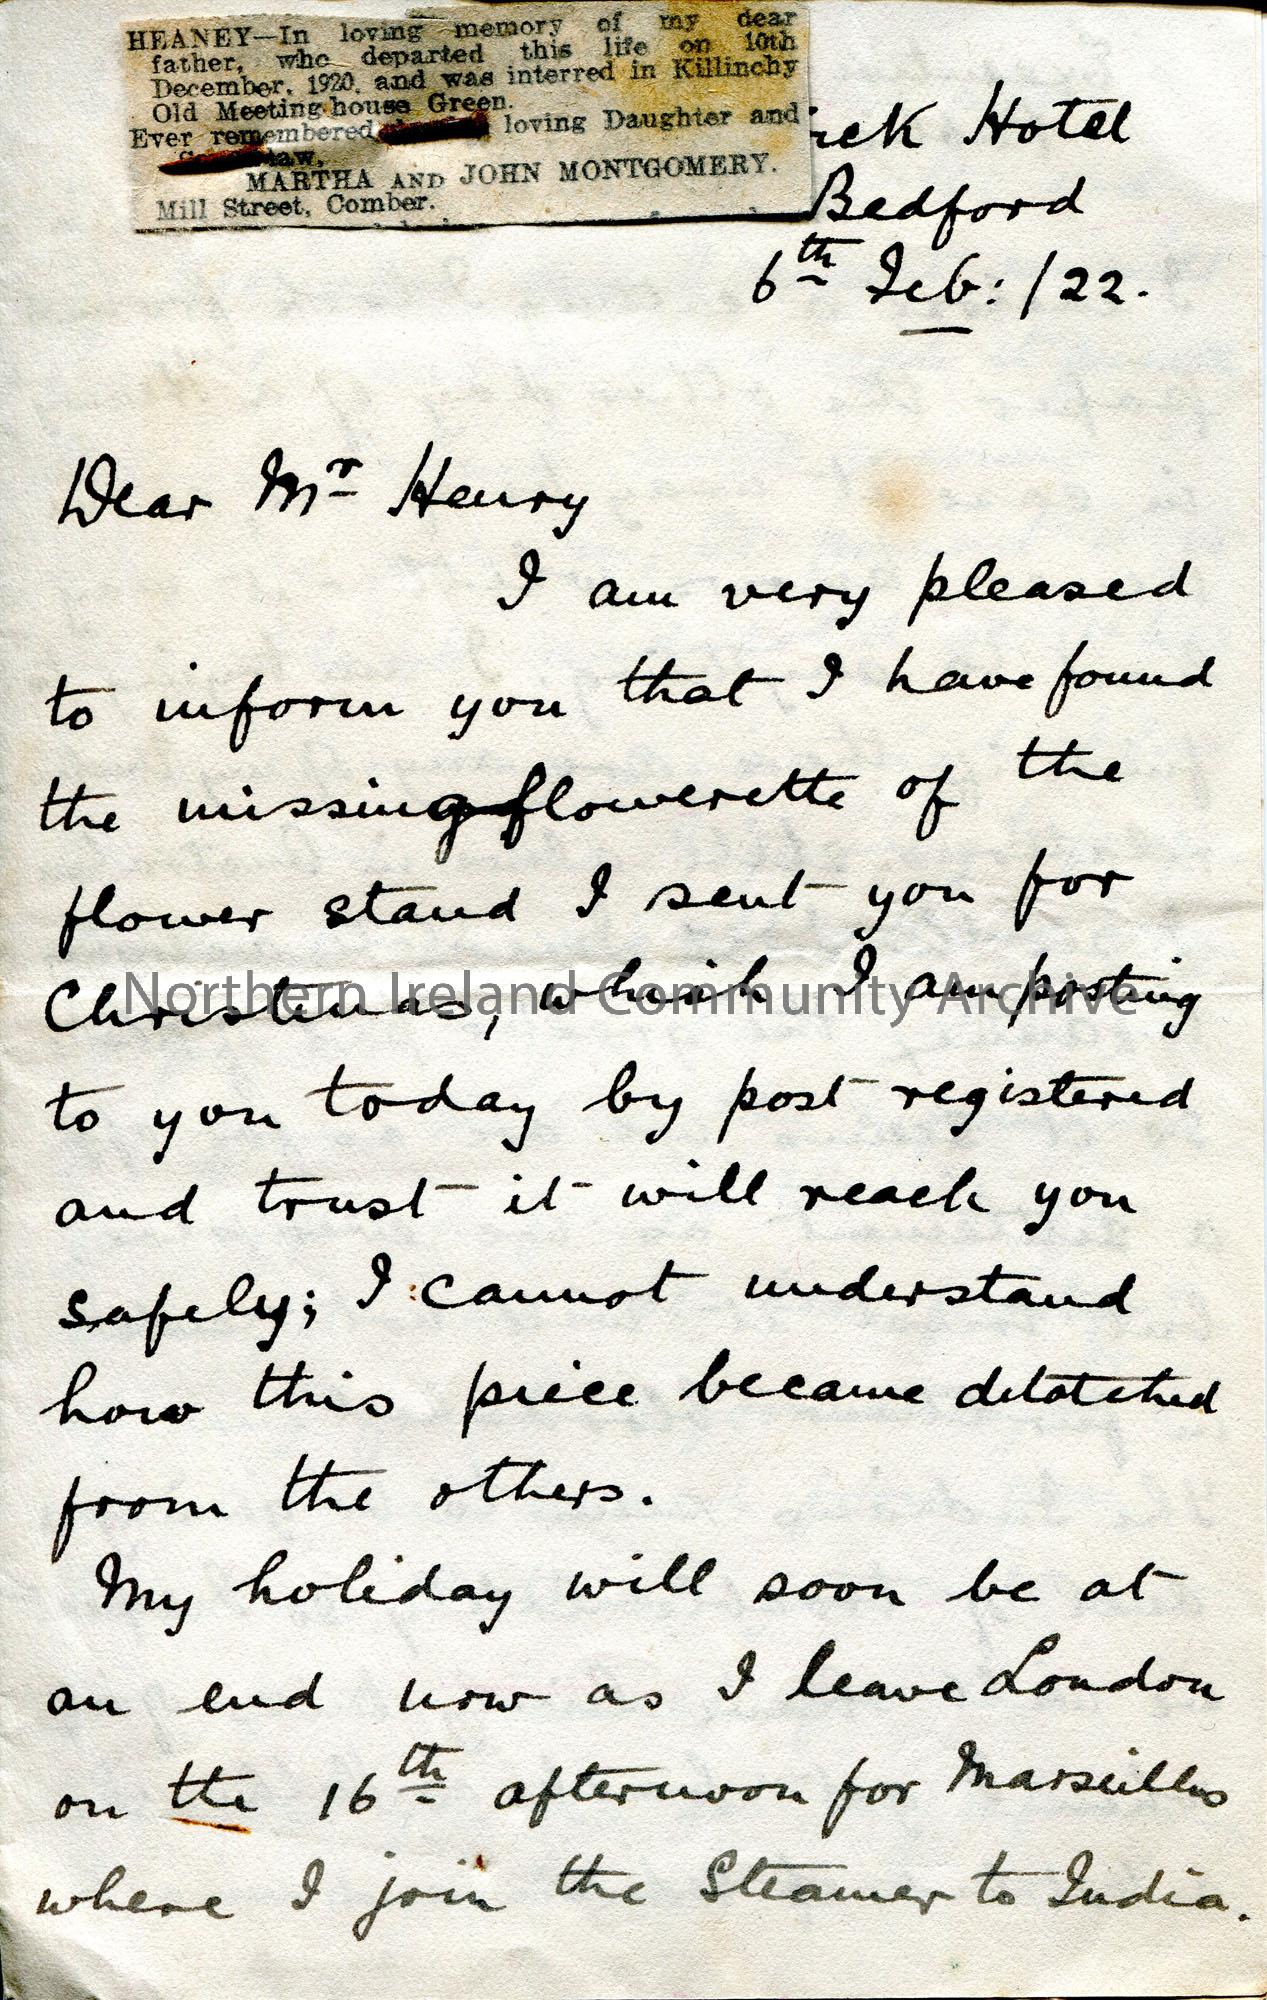 HEANEY—In loving memory of my dear
father, who departed this life on 10th
December, 1920, and was interred in Killinchy
Old Meeting house Green.
Ever remembered loving Daughter and
law,
MARTHA AND JOHN MONTGOMERY.
Mill Street, Comber.
Hotel
Bedford
6th Feb: /22.
Dear Mr Henry
I am very pleased
to inform you that I have found
the missing flowerette of the
flower stand I sent you for
Christmas, which I am posting
Northern Ireland Community Archive
to you today by post registered
and trust it will reach you
safely; I cannot understand
how this piece became detatched
from the others.
My holiday will soon be at
an end now as I leave London
on the 16th afternoon for Marseilles
where I join the Steamer to India.